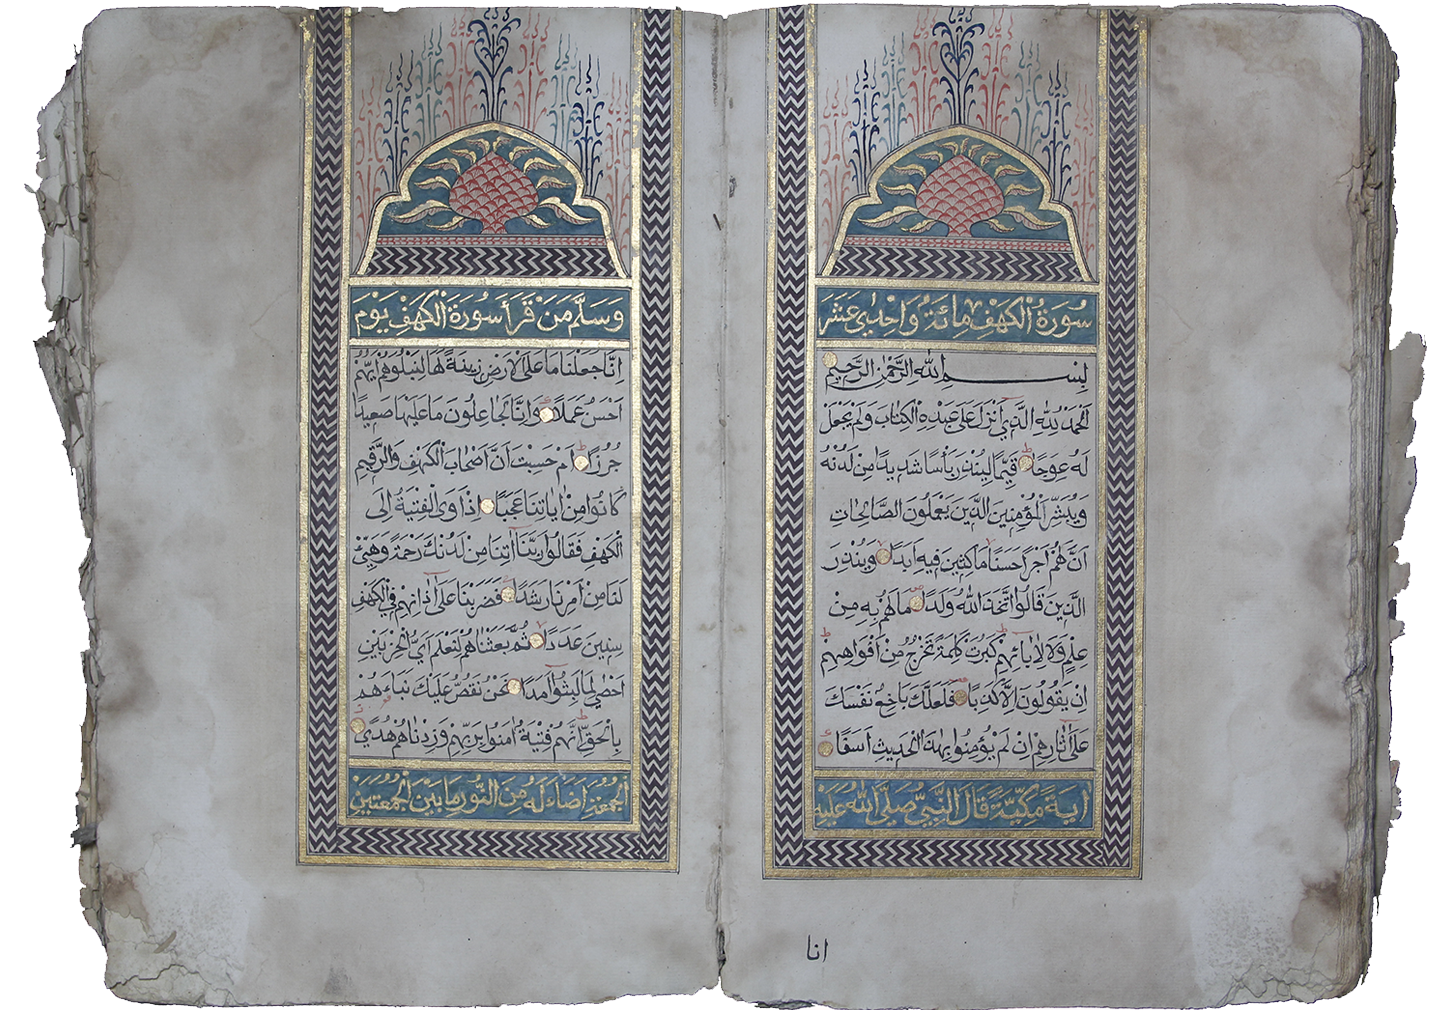 سُورَةُ الْكَهْفِ مِائَةٌ وَاحِدٰي عَشَرَ
بِسْمِ اللّٰهِ الرَّحْمٰنِ الرَّحِيمِ
اَلْحَمْدُ لِلّٰهِ الَّذِي اَنْزَلَ عَلٰى عَبْدِهِ الْكِتَابَ وَلَمْ يَجْعَلْ
لَهُ عِوَجًا قَيِّمًا لِيُنْذِرَ بَأْسًا شَدِيدًا مِنْ لَدُنْهُ
وَيُبَشِّرَ الْمُؤْمِنِينَ الَّذِينَ يَعْمَلُونَ الصَّالِحَاتِ
اَنَّ لَهُمْ اَجْرًا حَسَنًا مَاكِثِينَ فِيهِ اَبَدًا وَيُنْذِرَ
الَّذِينَ قَالُوا اتَّخَذَ اللّٰهُ وَلَدًا مَا لَهُمْ بِهِ مِنْ
عِلْمٍ وَلَا لِاٰبَائِهِمْ كَبُرَتْ كَلِمَةً تَخْرُجُ مِنْ اَفْوَاهِهِمْ
اِنْ يَقُولُونَ اِلَّا كَذِبًا فَلَعَلَّكَ بَاخِعٌ نَفْسَكَ
عَلٰى اٰثَارِهِمْ اِنْ لَمْ يُؤْمِنُوا بِهٰذَا الْحَدِيثِ اَسَفًا
اٰيَةً مَكِّيَّةٌ قَالَ النَّبِيُّ صَلَّى اللّٰهُ عَلَيْهِ
انا
وَسَلَّمَ مَنْ قَرَأَ سُورَةَ الْكَهْفِ يَوْمَ
اِنَّا جَعَلْنَا مَا عَلَى الْاَرْضِ زِينَةً لَهَا لِنَبْلُوَهُمْ اَيُّهُمْ
اَحْسَنُ عَمَلًا وَاِنَّا لَجَاعِلُونَ مَا عَلَيْهَا صَعِيدًا
جُرُزًا اَمْ حَسِبْتَ اَنَّ اَصْحَابَ الْكَهْفِ وَالرَّقِيمِ
كَانُوا مِنْ اٰيَاتِنَا عَجَبًا اِذْ اَوَى الْفِتْيَةُ اِلَى
الْكَهْفِ فَقَالُوا رَبَّنَا اٰتِنَا مِنْ لَدُنْكَ رَحْمَةً وَهَيِّئْ
لَنَا مِنْ اَمْرِنَا رَشَدًا فَضَرَبْنَا عَلٰى اٰذَانِهِمْ فِي الْكَهْفِ
سِنِينَ عَدَدًا ثُمَّ بَعَثْنَاهُمْ لِنَعْلَمَ اَيُّ الْحِزْبَيْنِ
اَحْصٰى لِمَا لَبِثُوا اَمَدًا نَحْنُ نَقُصُّ عَلَيْكَ نَبَاَهُمْ
بِالْحَقِّ اِنَّهُمْ فِتْيَةٌ اٰمَنُوا بِرَبِّهِمْ وَزِدْنَاهُمْ هُدًي
الْجُمُعَةِ اَضَاءَ لَهُ مِنَ النُّورِ مَا بَيْنَ الْجُمُعَتَيْنِ